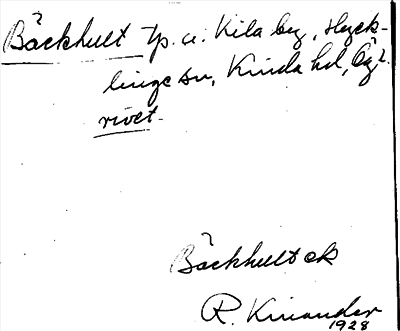 Bäckhult tp. u. Kila by, Hyck-
linge sn, Kinda hd, Ög.
rivet.
Bäckhult ek
R. Kinander
1928